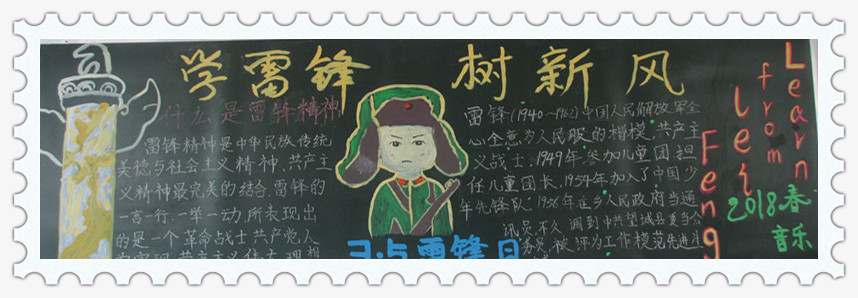 学雷锋 树新风
什么是雷锋精神
雷锋精神是中华民族传统
美德与社会主义精神、共产主
义精神最完美的结合。雷锋的
一言一行、一举一动,所表现出
的是一个革命战士共产党人
雷锋(1940-1962)中国人民解放军全
心全意为人民服的楷模,共产主
义战士,1949年,参加儿童团,担
任儿童团长,1954年加入了中国少
年先锋队,1956年在乡人民政府当通
讯员,不久调到中共望城县委当公
务员,被评为工作模范先进
3·5雷锋日
Learn
from
Lei
Feng
2018.春
音乐